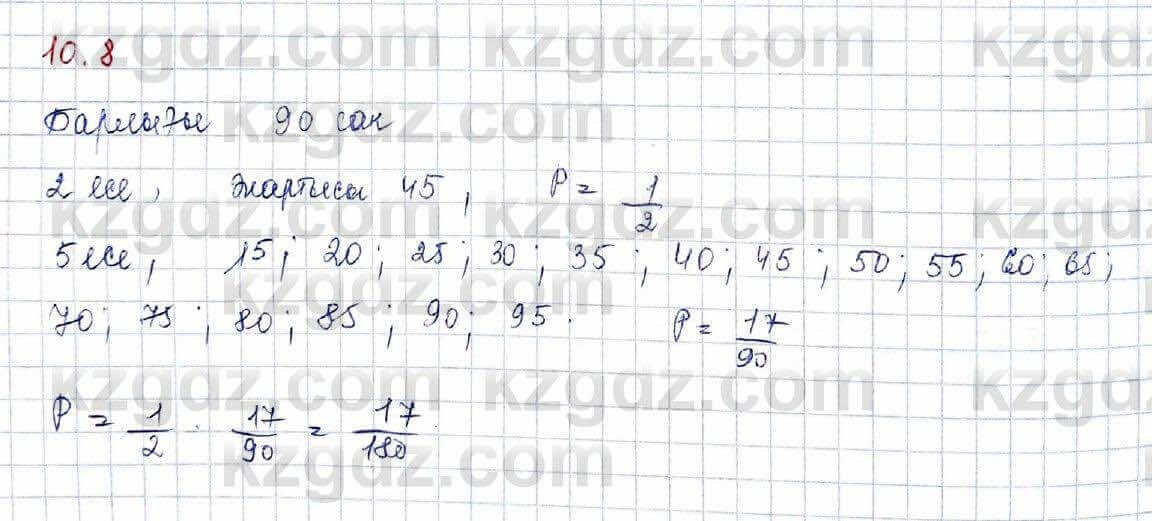 10.8
Барлығы 90 сан
2 есе, жартысы 45, P = 1/2
5 есе, 15; 20; 25; 30; 35; 40; 45; 50; 55; 60; 65;
70; 75; 80; 85; 90; 95. P = 17/90
P = 1/2 · 17/90 = 17/180
kzgdz.com kzgdz.com kzgdz.com
kzgdz.com kzgdz.com
kzgdz.com kzgdz.com kzgdz.com
kzgdz.com kzgdz.com
kzgdz.com kzgdz.com kzgdz.com
kzgdz.com kzgdz.com